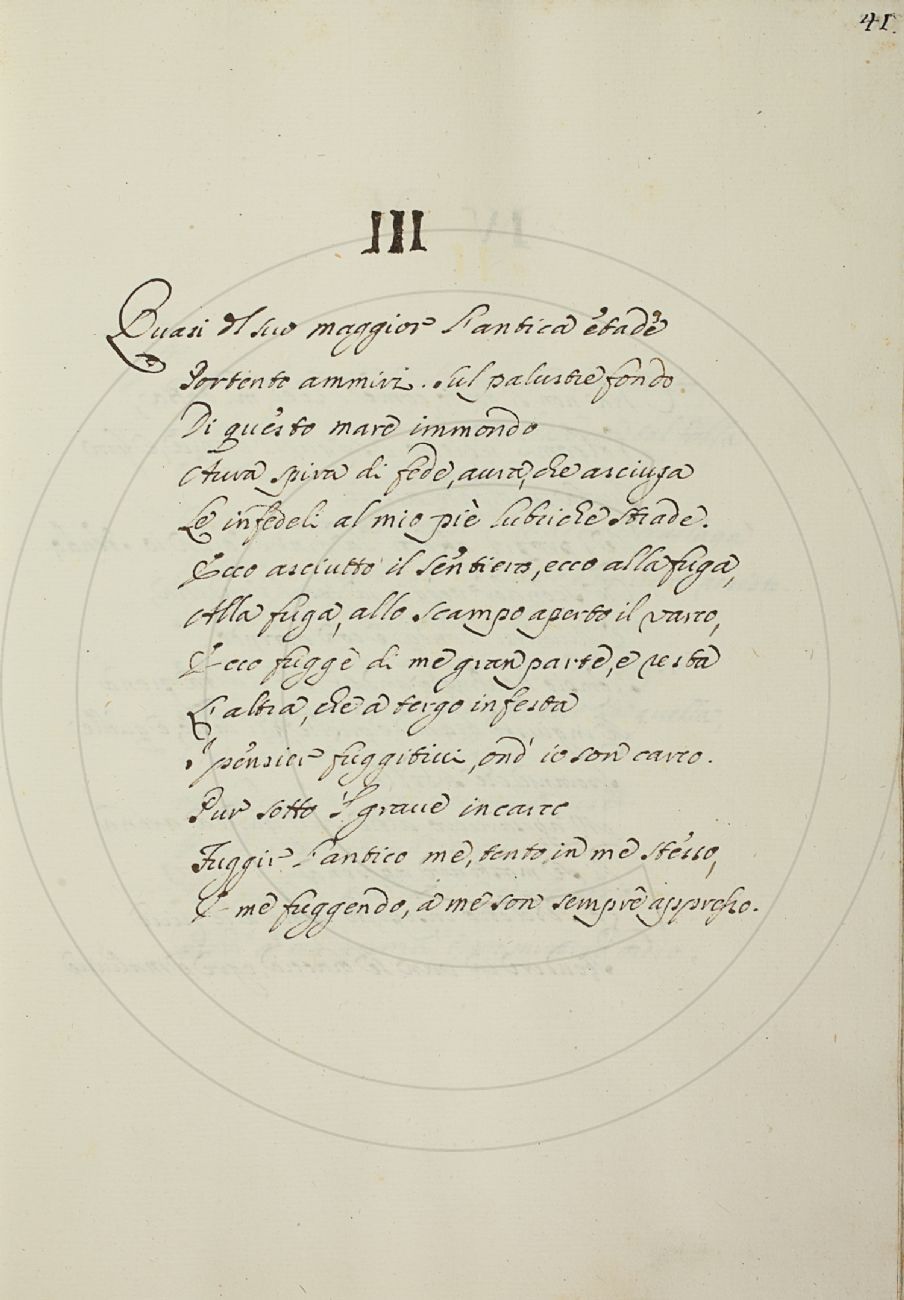 41.
III
Quasi Il suo maggior l'antica etade
Portento ammiri. Sul palustre fondo
Di questo mare immondo
Aura spira di fede, aura, che asciuga
Le infedeli al mio piè lubriche strade.
Ecco asciutto il sentiero, ecco alla fuga,
Alla fuga, allo scampo aperto il varco,
Ecco fugge di me gran parte, e resta
L'altra, che a tergo infesta
I pensier fuggitivi, ond' io son carco.
Pur sotto 'l grave incarco
Fuggir l'antico me, tento, in me stesso,
E me fuggendo, a me son sempre appresso.